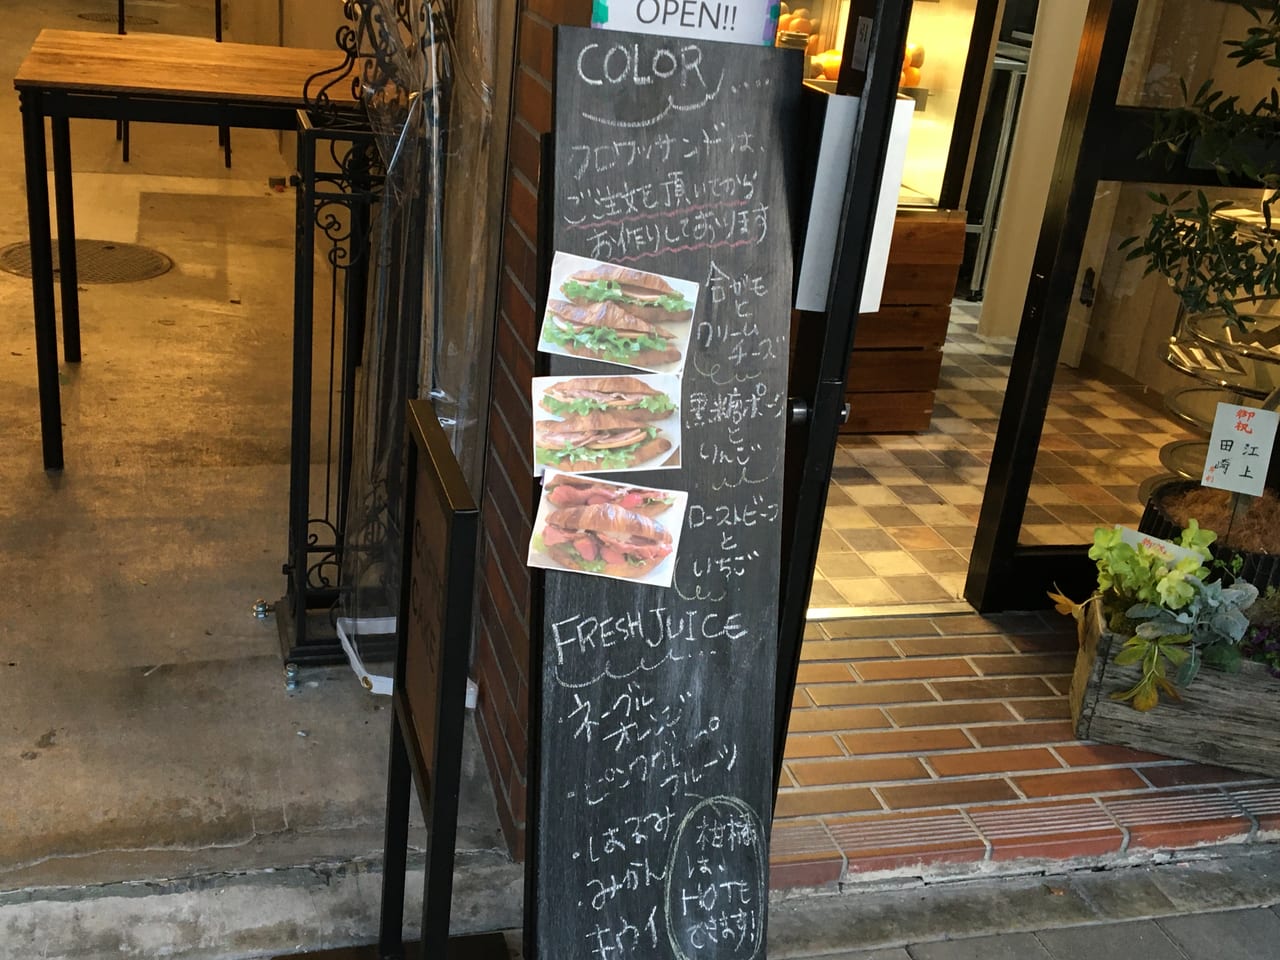 OPEN!!
COLOR
クロワッサンドは、
ご注文を頂いてから
お作りしております
合ガモ
と
クリーム
チーズ
黒糖ポーク
と
りんご
ローストビーフ
と
いちご
FRESH JUICE
・ネーブル
オレンジ
・ピンクグレープ
フルーツ
・はるみ
・みかん
キウイ
柑橘
は、
HOTも
できます!
御祝
江上
田崎